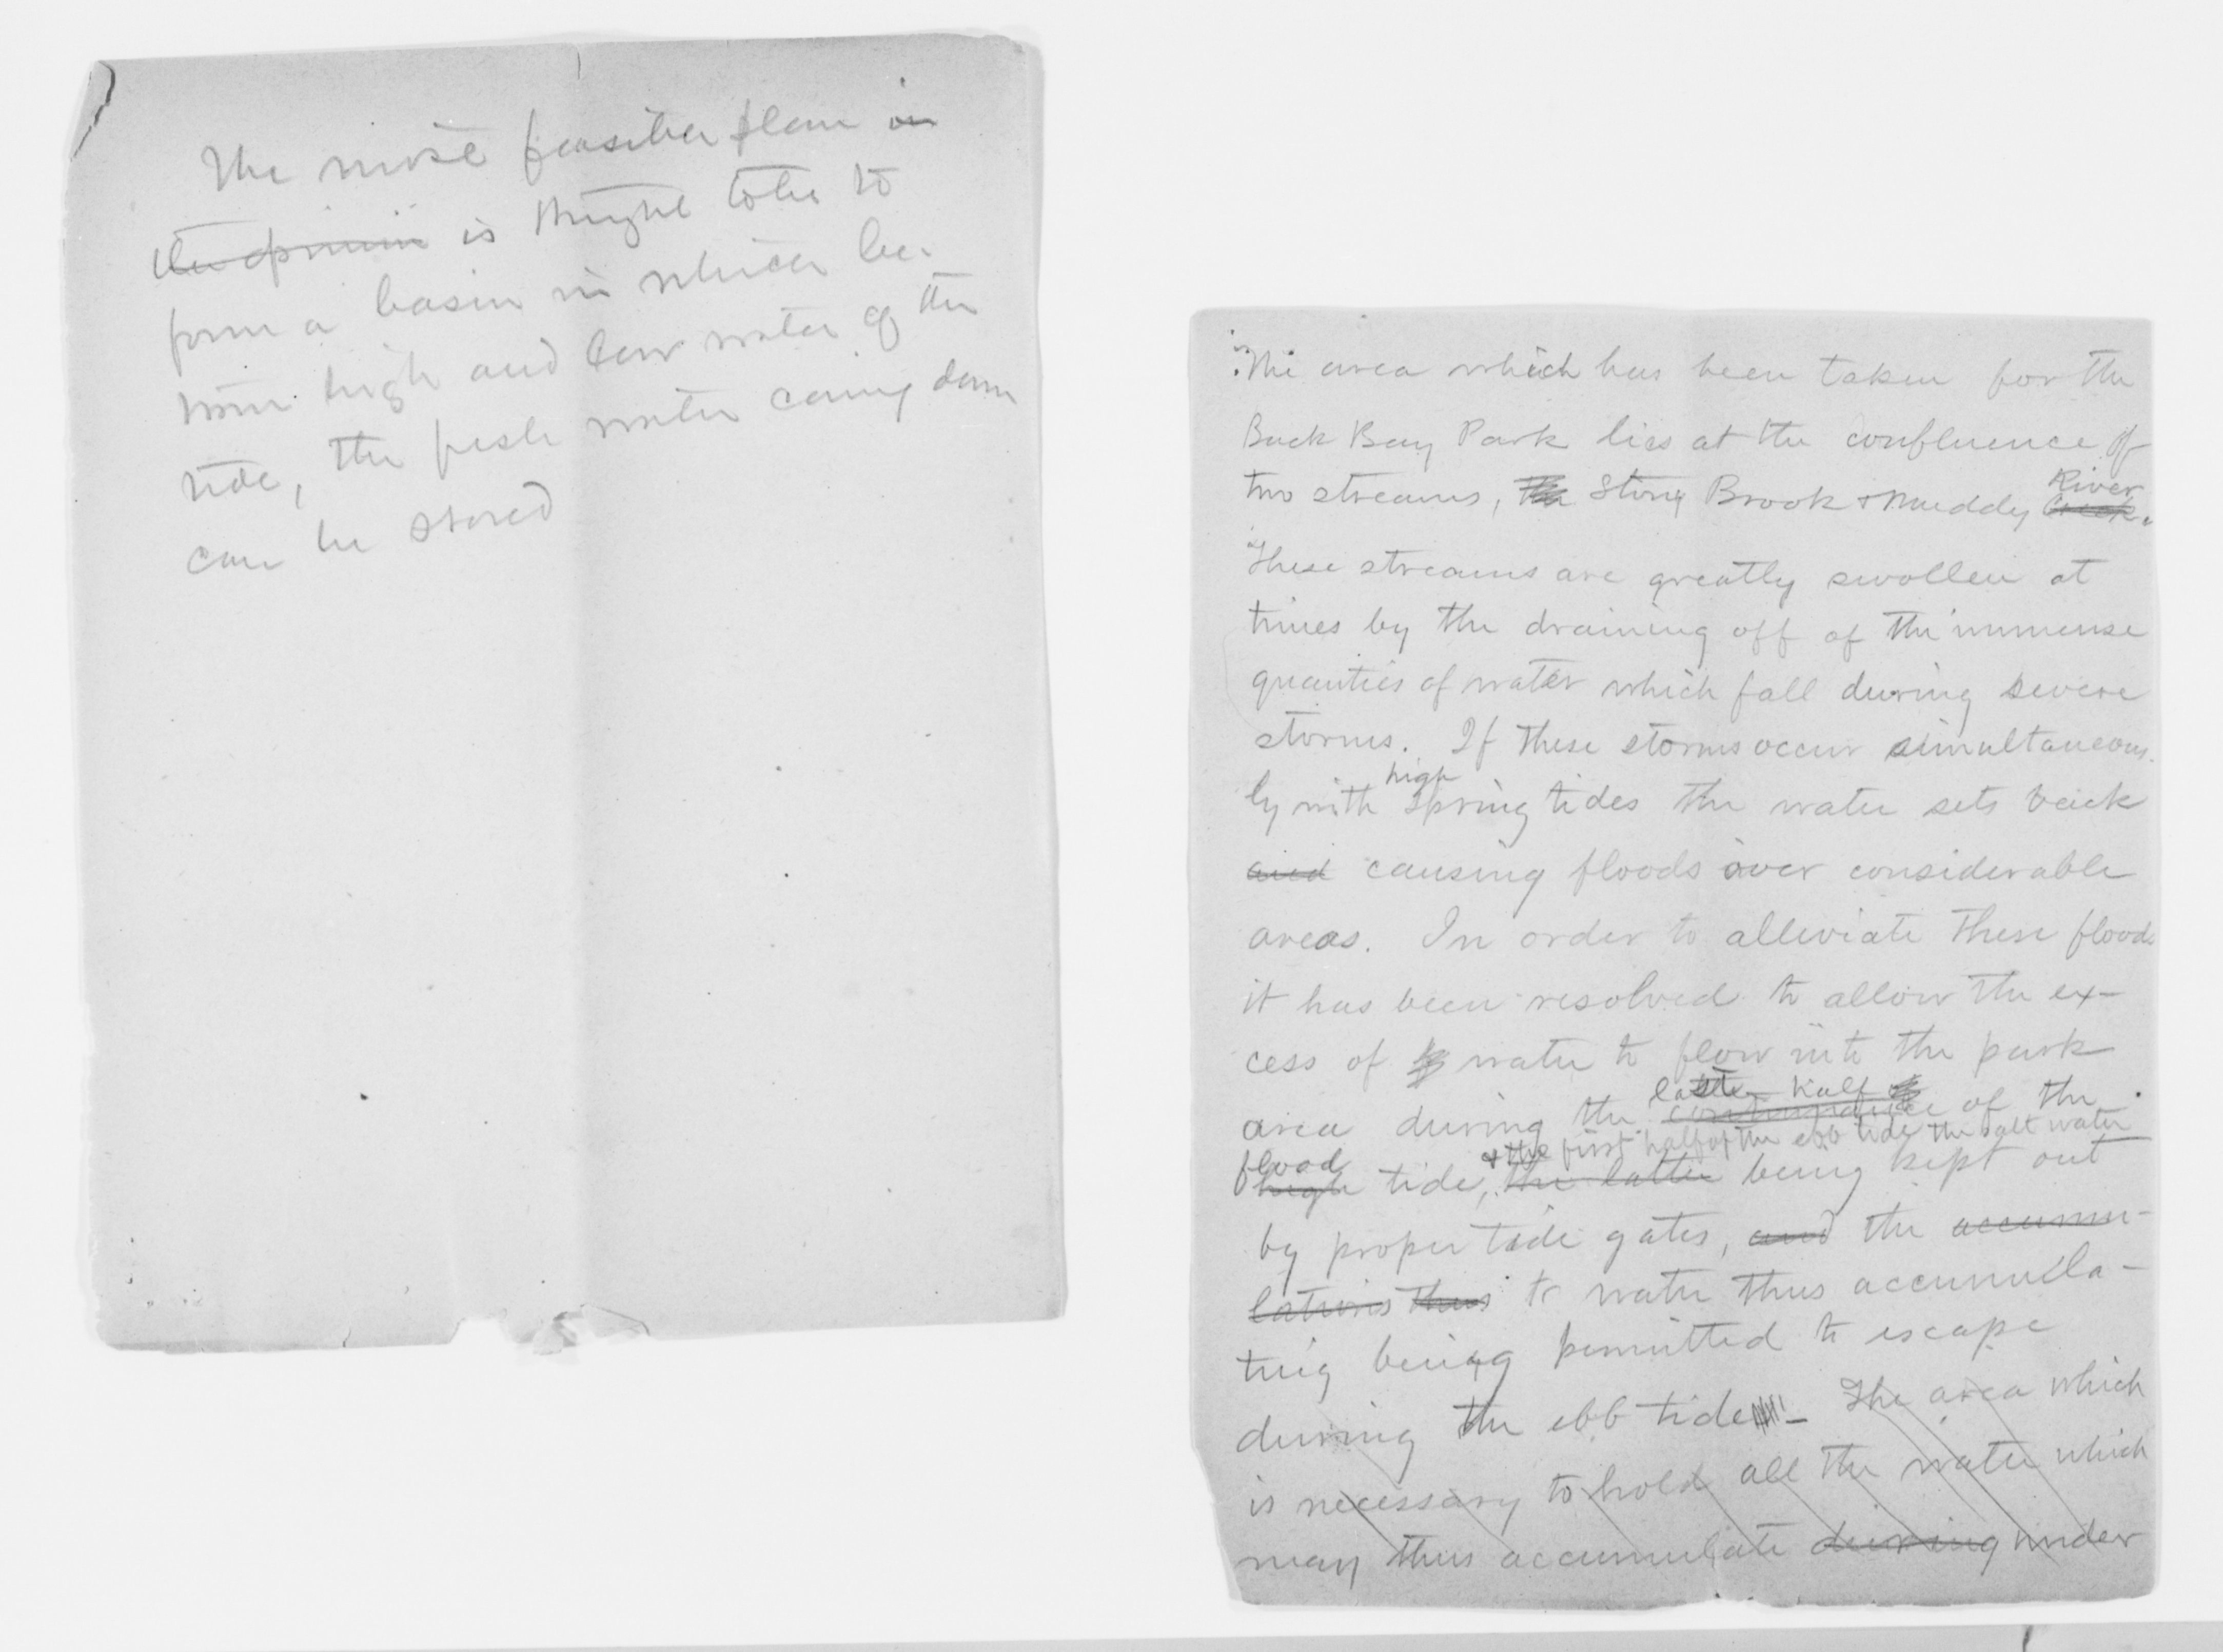 The most feasible plan in
the opinion is thought to be to
form a basin in which be-
tween high and low water of the
tide, the fresh water coming down
can be stored
The area which has been taken for the
Back Bay Park lies at the confluence of
two streams, the Stony Brook & Muddy River
These streams are greatly swollen at
times by the draining off of the immense
quantities of water which fall during severe
storms. If these storms occur simultaneous-
high
ly with spring tides the water sets back
and causing floods over considerable
areas. In order to alleviate these floods
it has been resolved to allow the ex-
cess of water to flow into the park
latter half
area during the continuance of the
& the first half of the ebb tide the salt water
flood
high tide, the latter being kept out
by proper tide gates, and the accumu-
lations thus to water thus accumula-
ting being permitted to escape
during the ebb tide - The area which
is necessary to hold all the water which
may thus accumulate during under